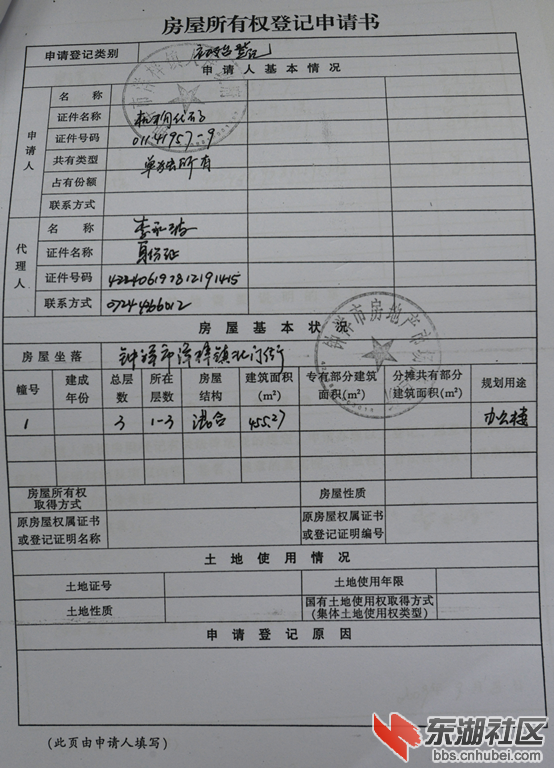 房屋所有权登记申请书
申请登记类别 登记
申请人基本情况
申请人
名 称
证件名称 机构代码
证件号码 01141957-9
共有类型 单独所有
占有份额
联系方式
代理人
名 称 李
证件名称 身份证
证件号码
联系方式 0724
房屋基本状况
房屋坐落 钟祥市 镇北门街
幢号 建成年份 总层数 所在层数 房屋结构 建筑面积(m²) 专有部分建筑面积(m²) 分摊共有部分建筑面积(m²) 规划用途
1 3 1-3 混合 455.27 办公楼
房屋所有权取得方式 房屋性质
原房屋权属证书或登记证明名称 原房屋权属证书或登记证明编号
土地使用情况
土地证号 土地使用年限
土地性质 国有土地使用权取得方式(集体土地使用权类型)
申请登记原因
(此页由申请人填写)
钟祥市房地产市场
东湖社区
bbs.cnhubei.com